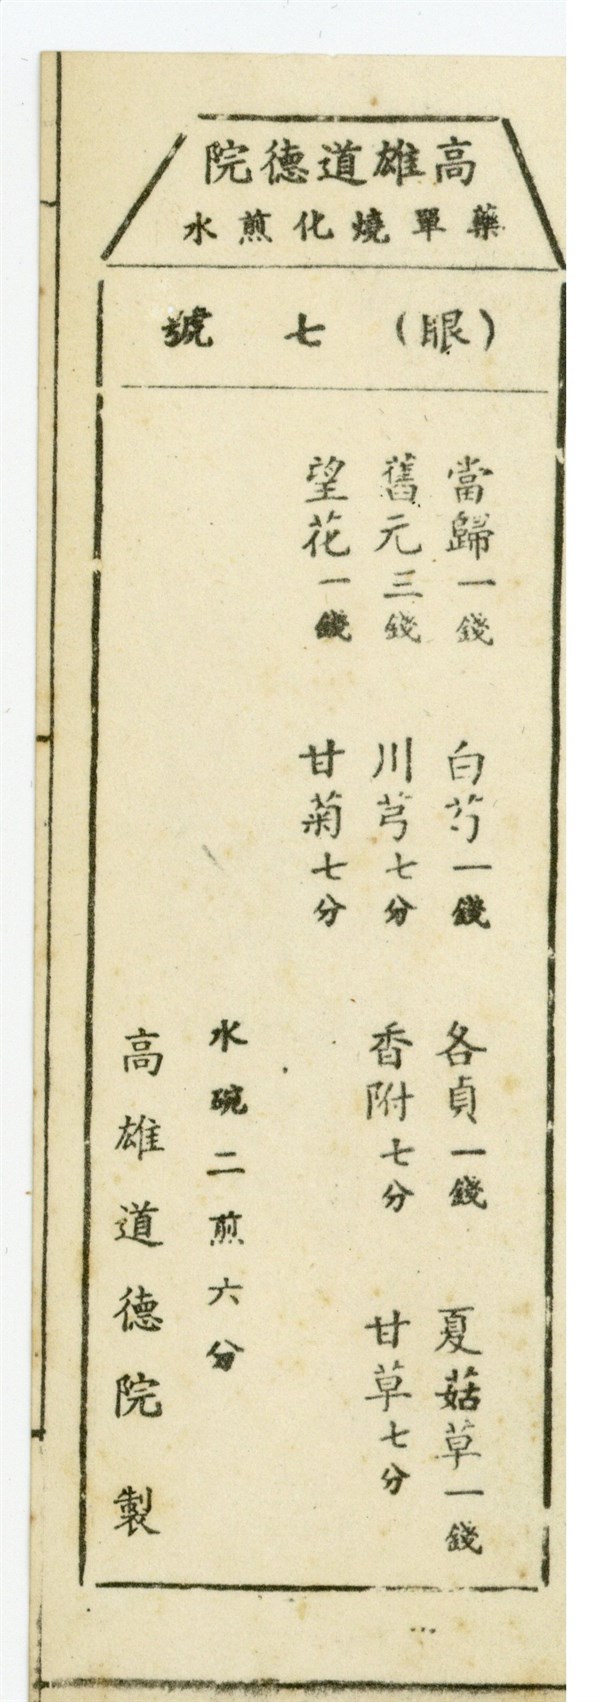 高雄道德院
藥單燒化煎水
(眼)七號
當歸一錢 白芍一錢 各貞一錢 夏菇草一錢
舊元三錢 川芎七分 香附七分 甘草七分
望花一錢 甘菊七分
水碗二煎六分
高雄道德院製